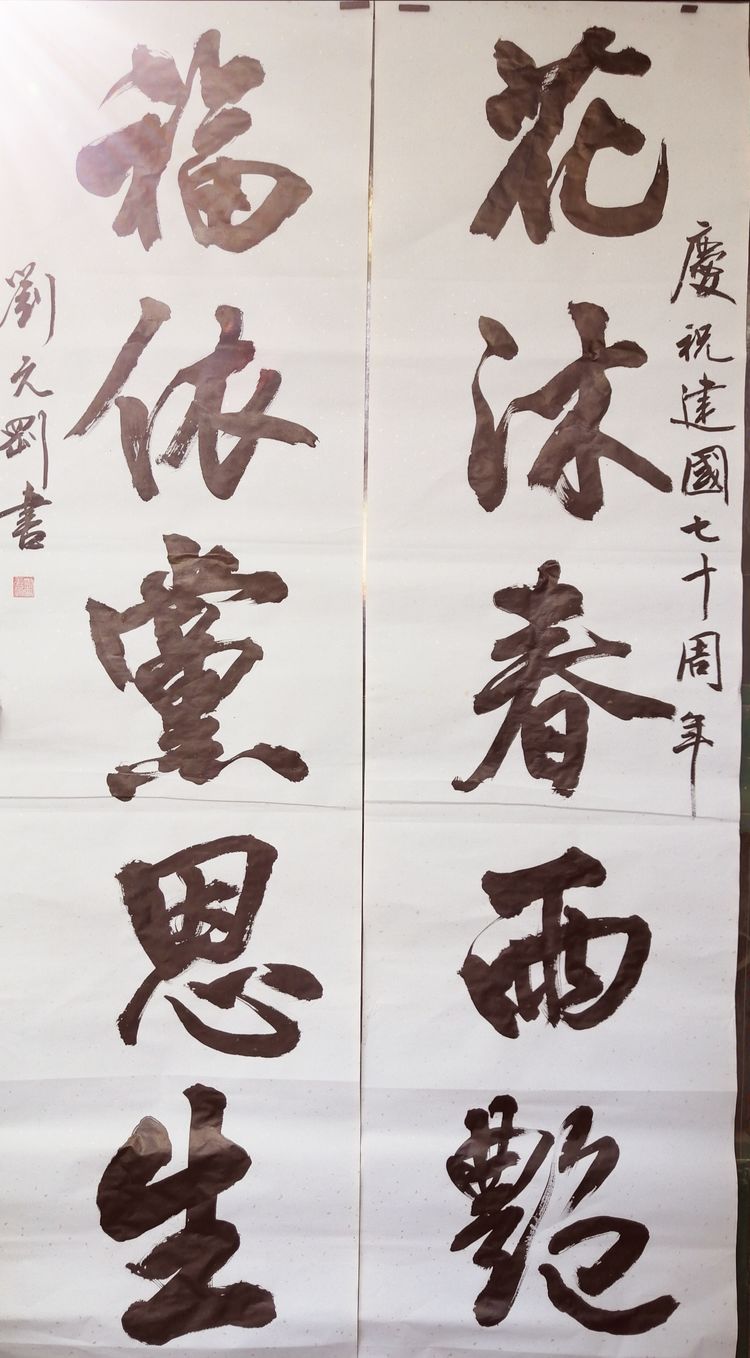 慶祝建國七十周年
花沐春雨艷
福依黨恩生
劉元剛書